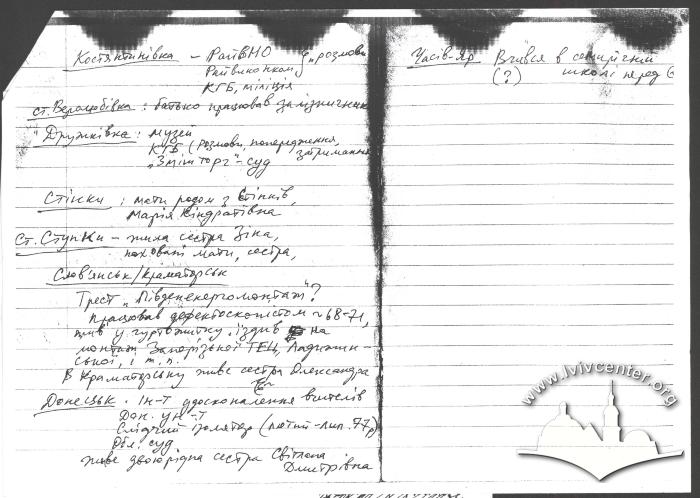 Костянтинівка – РайВНО { „розмови
Райвиконком
КГБ, міліція
ст. Веролюбівка : батько працював залізничник
"Дружківка : музей
КГБ (розмови, попередження,
затримання
„Змішторг"–суд
Стінки : мати родом з Стінків,
Марія Кіндратівна
Ст. Ступки – жила сестра Зіна,
поховані мати, сестра,
Слов'янськ/Краматорськ
Трест „Південенергомонтаж"?
працював дефектоскопістом ~ 68–71,
жив у гуртожитку, їздив на
монтаж Запорізької ТЕЦ, Ладижин-
ської, і т. п.
В Краматорську живе сестра Олександра
Донецьк. Ін-т удосконалення вчителів
Дон. ун-т
Слідчий ізолятор (лютий–лип. 77р)
Обл. суд
живе двоюрідна сестра Світлана
Дмитрівна
Часів-Яр Вчився в семирічній
(?) школі перед
www.lvivcenter.org